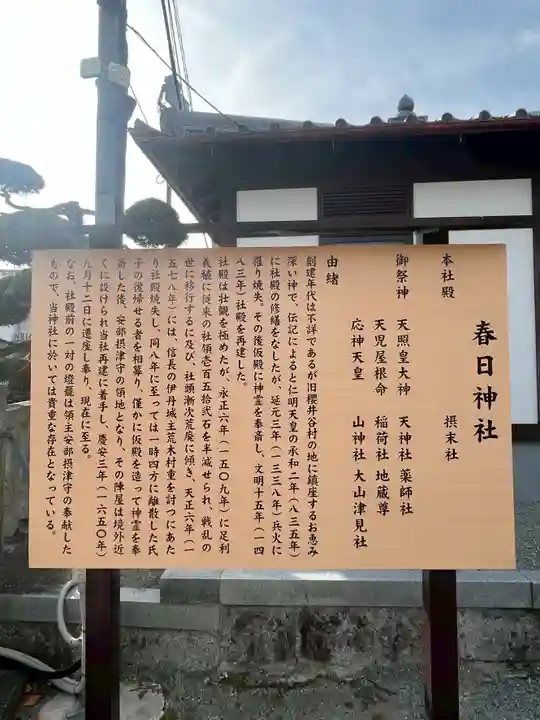 春日神社
本社殿　摂末社
御祭神　天照皇大神　天神社 薬師社
天児屋根命　稲荷社 地蔵尊
応神天皇　山神社 大山津見社
由緒
創建年代は不詳であるが旧櫻井谷村の地に鎮座するお恵み
深い神で、伝記によると仁明天皇の承和二年（八三五年）
に社殿の修繕をなしたが、延元三年（一三三八年）兵火に
罹り焼失。その後仮殿に神霊を奉斎し、文明十五年（一四
八三年）社殿を再建した。
社殿は壮観を極めたが、永正六年（一五〇九年）に足利
義稙に従来の社領壱百五拾弐石を半減せられ、戦乱の
世に移行するに及び、社頭漸次荒廃に傾き、天正六年（一
五七八年）には、信長の伊丹城主荒木村重を討つにあた
り社殿焼失し、同八年に至っては一時四方に離散した氏
子の復帰せる者を相募り、僅かに仮殿を造って神霊を奉
斎した後、安部摂津守の領地となり、その陣屋は境外近
くに設けられ当社再建に着手し、慶安三年（一六五〇年）
九月十二日に遷座し奉り、現在に至る。
なお、社殿前の一対の燈籠は領主安部摂津守の奉献した
もので、当神社に於いては貴重な存在となっている。